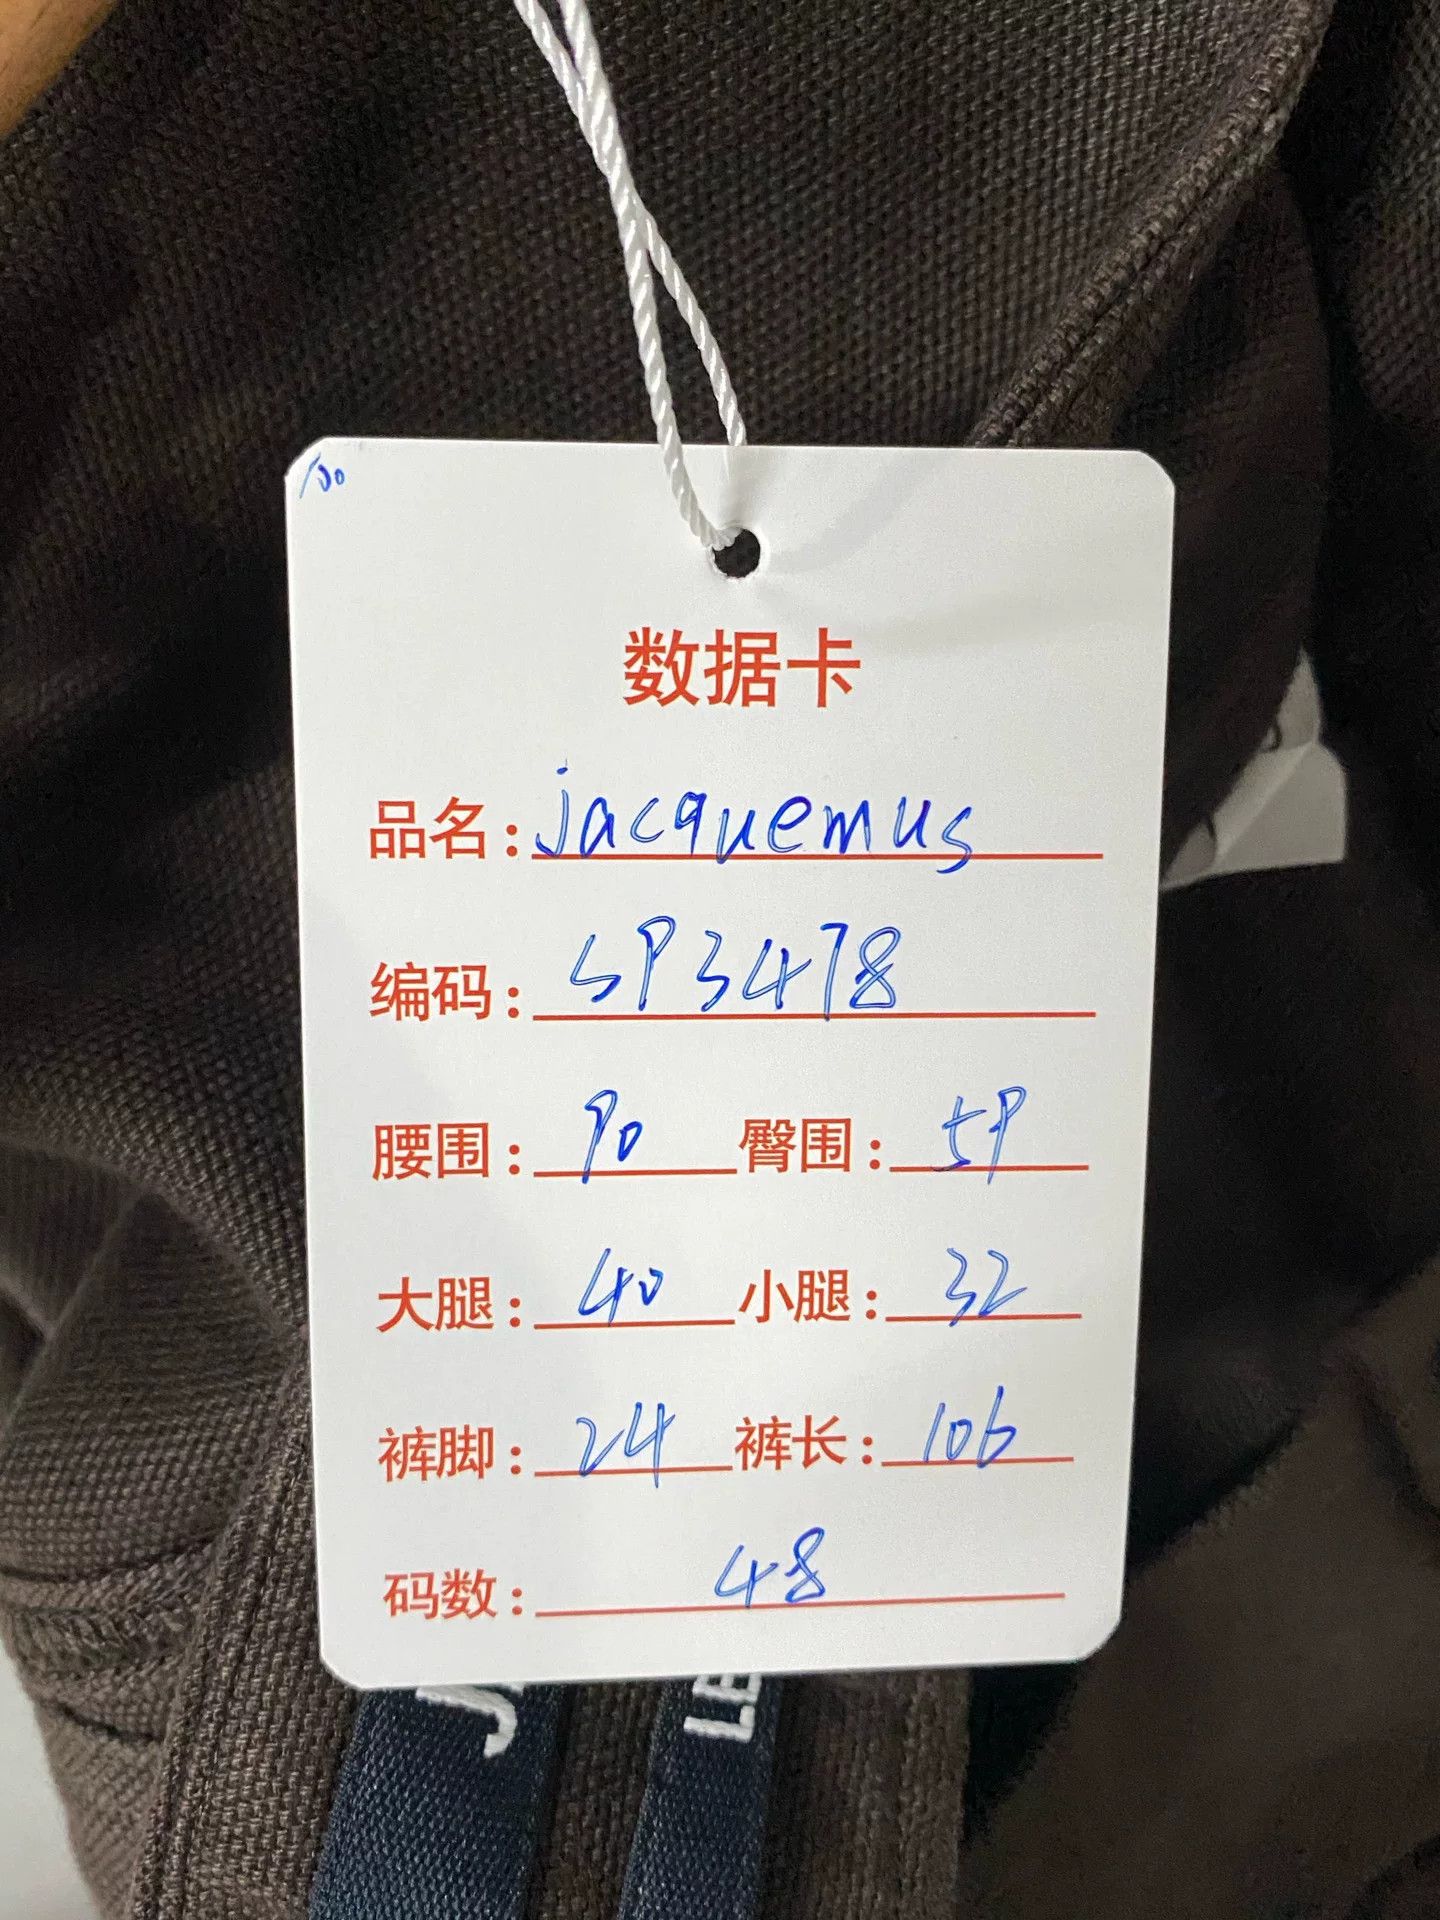 数据卡
品名：jacquemus
编码：SP3478
腰围：90 臀围：59
大腿：40 小腿：32
裤脚：24 裤长：106
码数：48
LE